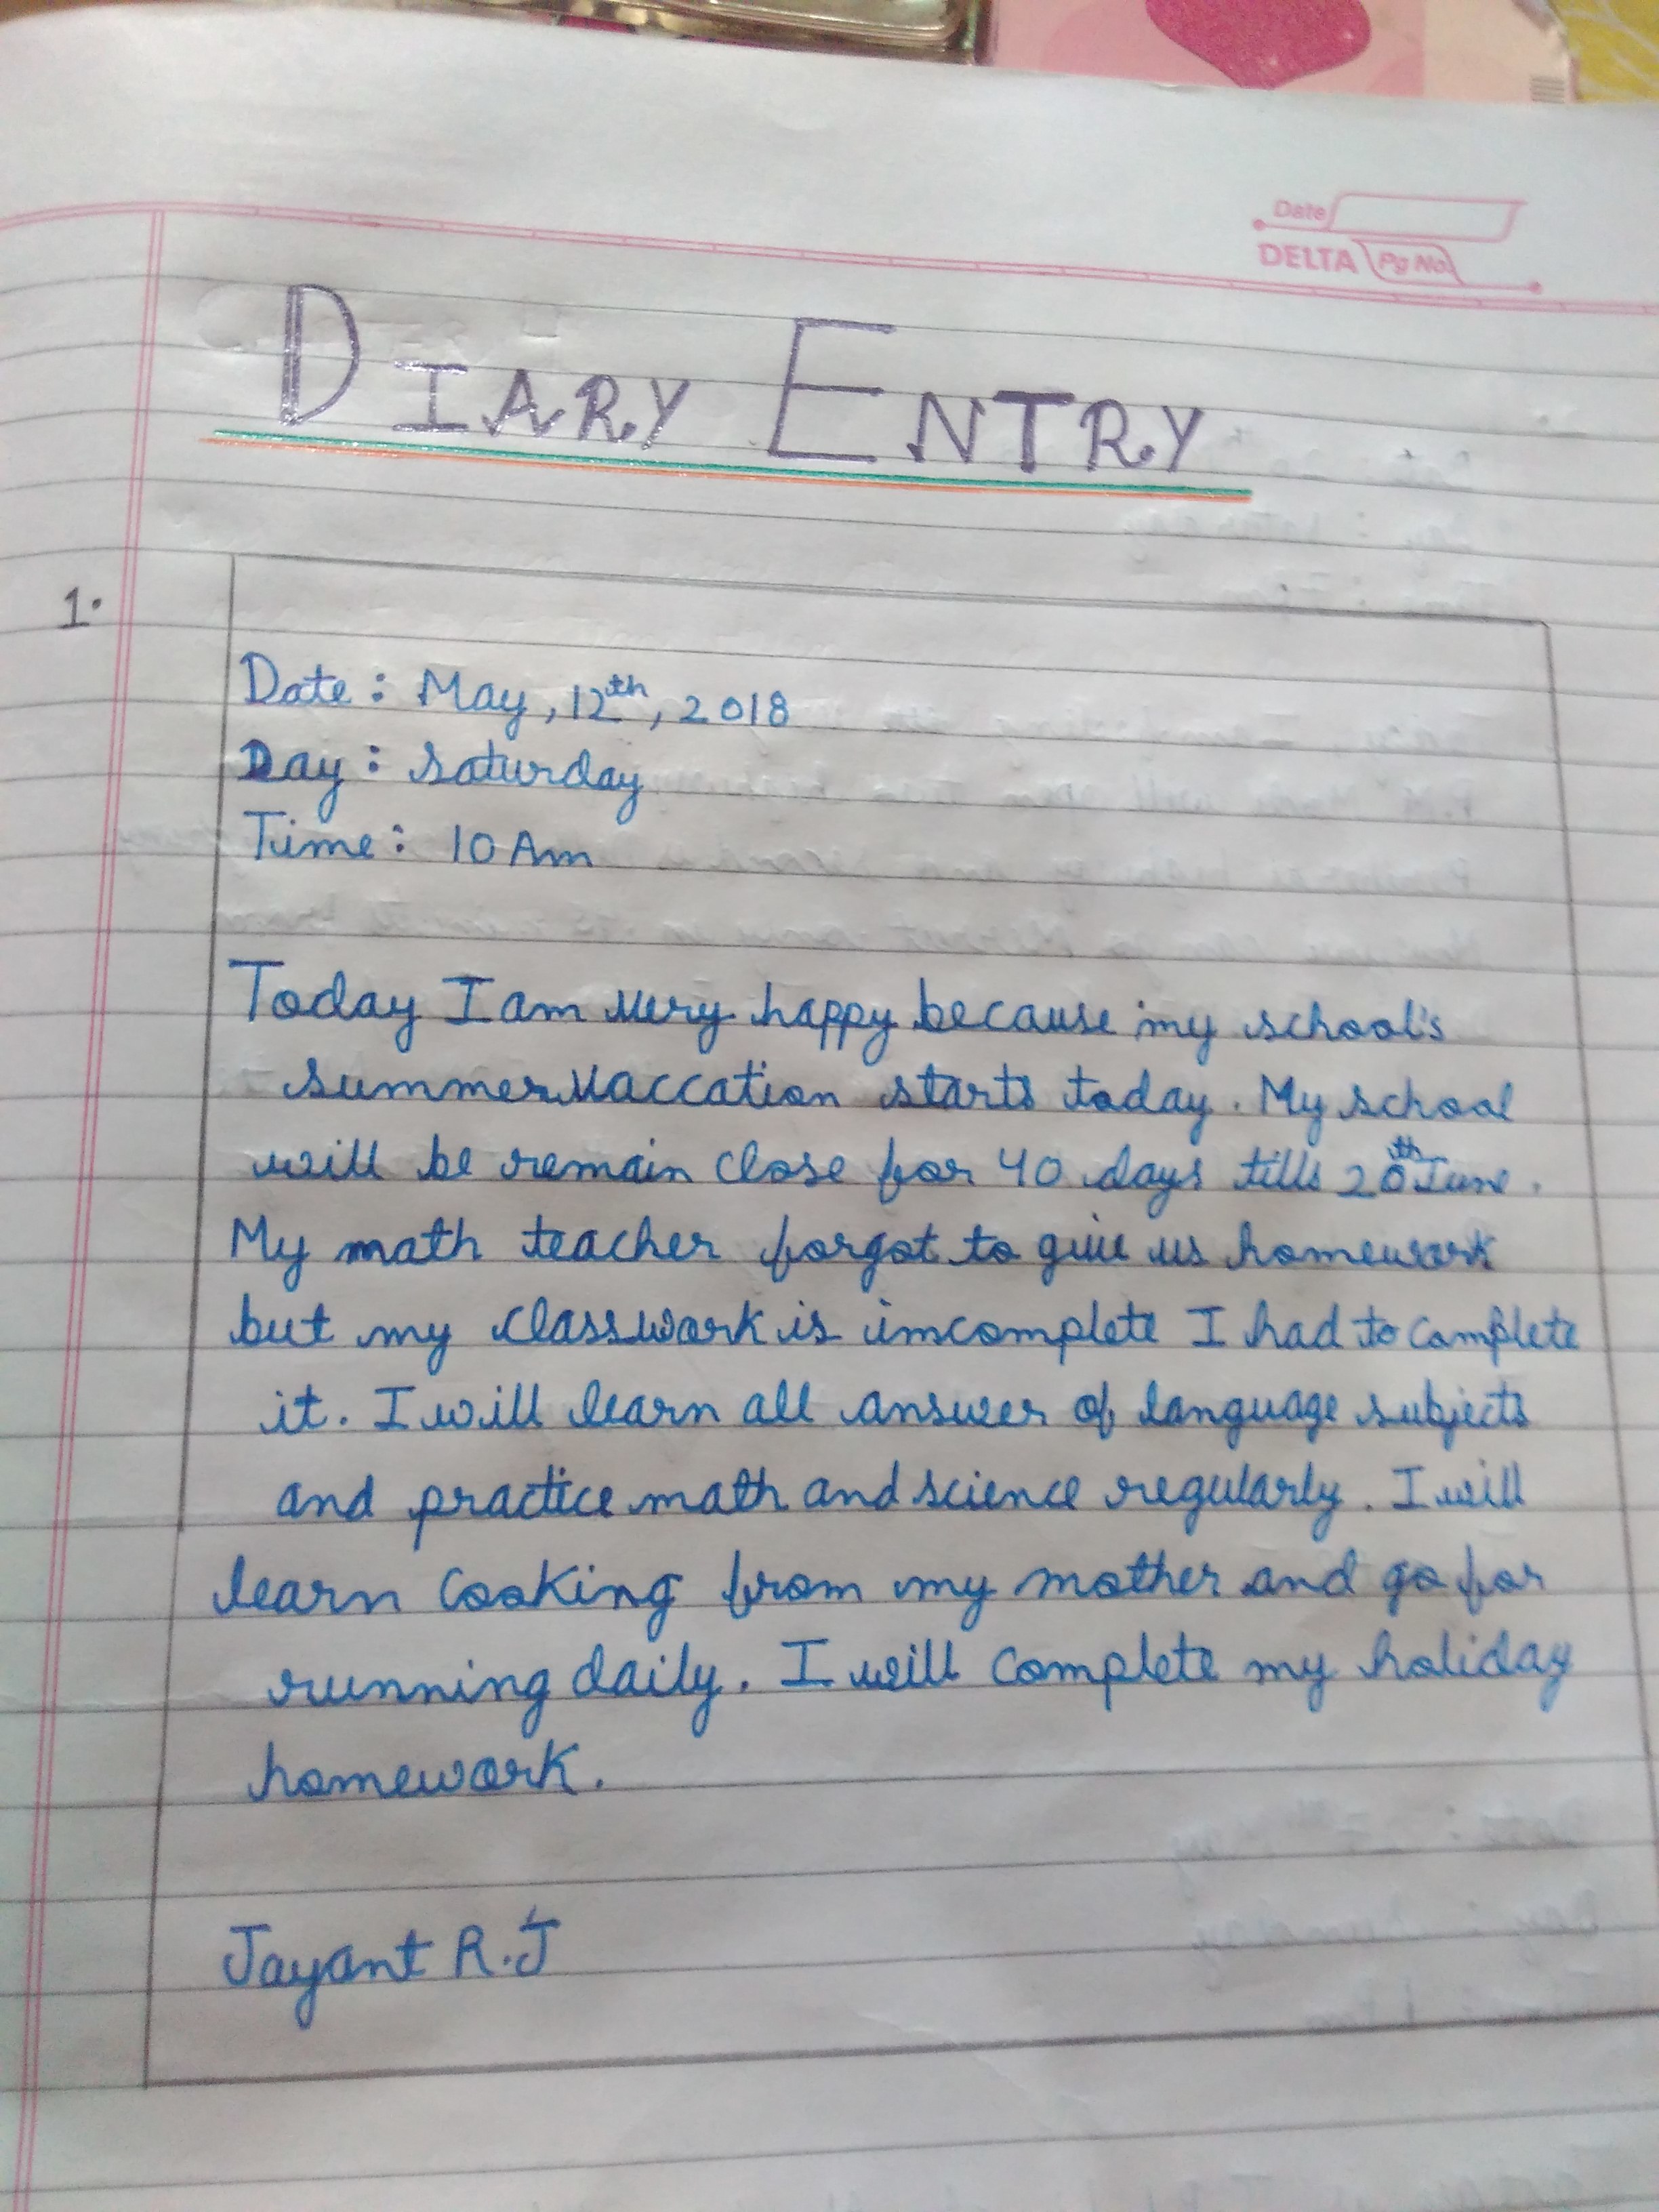 Date
DELTA Pg No.
DIARY ENTRY
1.
Date: May, 12th, 2018
Day: Saturday
Time: 10 Am
Today I am very happy because my school's
summer vaccation starts today. My school
will be remain close for 40 days tills 20th June.
My math teacher forgot to give us homework
but my classwork is imcomplete I had to complete
it. I will learn all answer of language subjects
and practice math and science regularly. I will
learn cooking from my mother and go for
running daily. I will complete my holiday
homework.
Jayant R.J